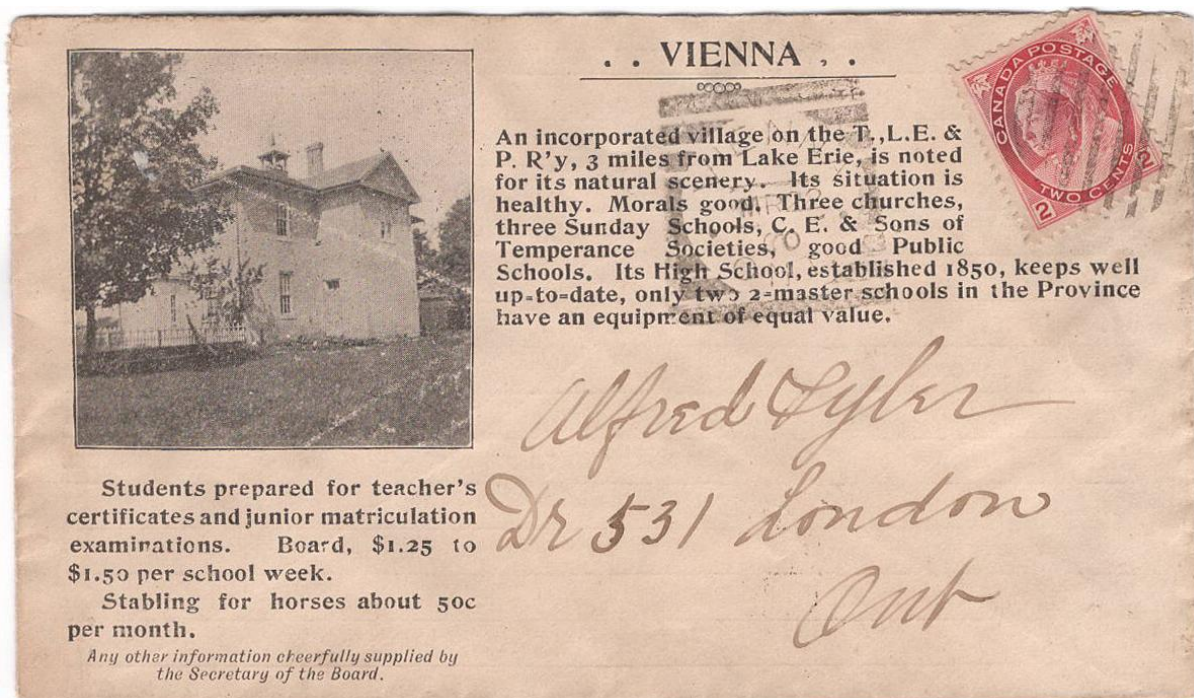 . . VIENNA . .
An incorporated village on the T., L. E. &
P. R'y, 3 miles from Lake Erie, is noted
for its natural scenery. Its situation is
healthy. Morals good. Three churches,
three Sunday Schools, C. E. & Sons of
Temperance Societies, good Public
Schools. Its High School, established 1850, keeps well
up-to-date, only two 2-master schools in the Province
have an equipment of equal value.
CANADA POSTAGE
TWO CENTS
2
2
Alfred Tyler
Dr 531 London
Ont
Students prepared for teacher's
certificates and junior matriculation
examinations. Board, $1.25 to
$1.50 per school week.
Stabling for horses about 50c
per month.
Any other information cheerfully supplied by
the Secretary of the Board.